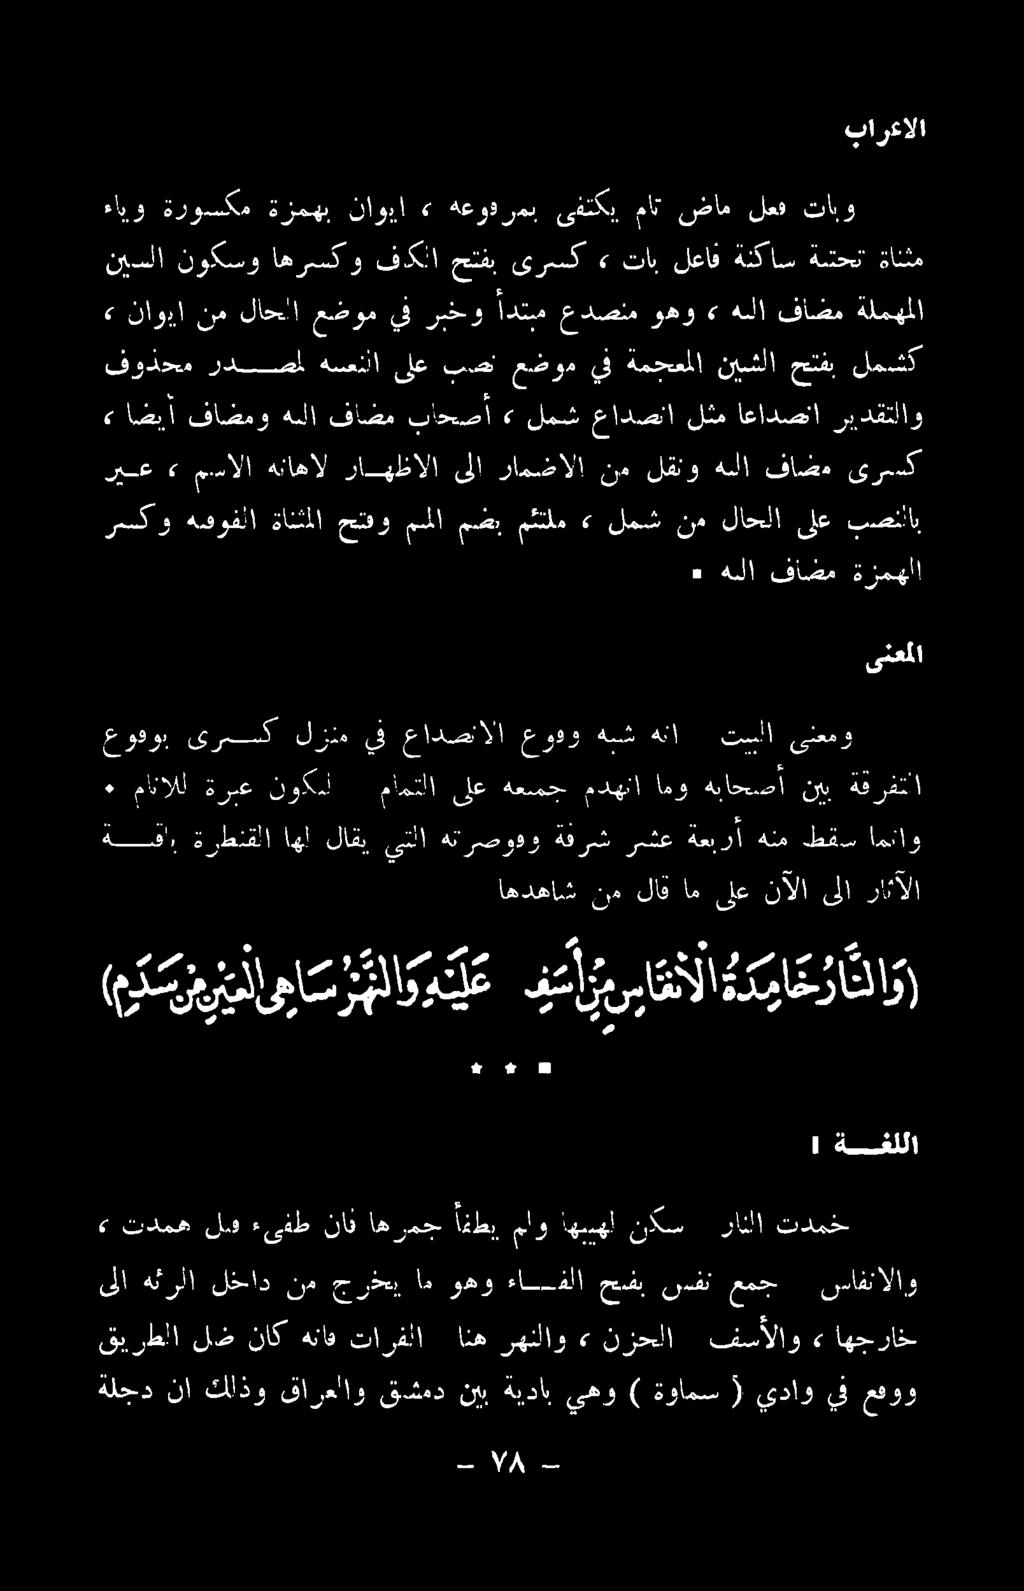 الاعراب
وبات فعل ماض تام يكتفى بمرفوعه ، ايوان بهمزة مكسورة وياء
مثناة تحتية ساكنة فاعل بات ، كسرى بفتح الكاف وكسرها وسكون السين
المهملة مضاف اليه ، وهو منصدع مبتدأ وخبر في موضع الحال من ايوان ،
كشمل بفتح الشين المعجمة في موضع نصب على النعتية لمصدر محذوف
والتقدير انصداعا مثل انصداع شمل ، أصحاب مضاف اليه ومضاف أيضا ،
كسرى مضاف اليه ونقل من الاضمار الى الاظهار لاهانة الاسم ، غير
بالنصب على الحال من شمل ، ملتئم بضم الميم وفتح المثناة الفوقية وكسر
الهمزة مضاف اليه .
المعنى
ومعنى البيت انه شبه وقوع الانصداع في منزل كسرى بوقوع
التفرقة بين أصحابه وما انهدم جميعه على التمام ليكون عبرة للانام .
وانما سقط منه أربعة عشر شرفة وقوصرته التي يقال لها القنطرة باقية
الآثار الى الآن على ما قال من شاهدها
(وَالنَّارُ خَامِدَةُ الْأَنْفَاسِ مِنْ أَسَفٍ عَلَيْهِ وَالنَّهْرُ سَاهِي الْعَيْنِ مِنْ سَدَمِ)
. * *
اللغة :
خمدت النار سكن لهيبها ولم يطفأ جمرها فان طفىء قيل همدت ،
والانفاس جمع نفس بفتح الفاء وهو ما يخرج من داخل الرئه الى
خارجها ، والأسف الحزن ، والنهر هنا الفرات فانه كان ضل الطريق
ووقع في وادي ( سماوة ) وهي بادية بين دمشق والعراق وذلك ان دجلة
– ٧٨ –